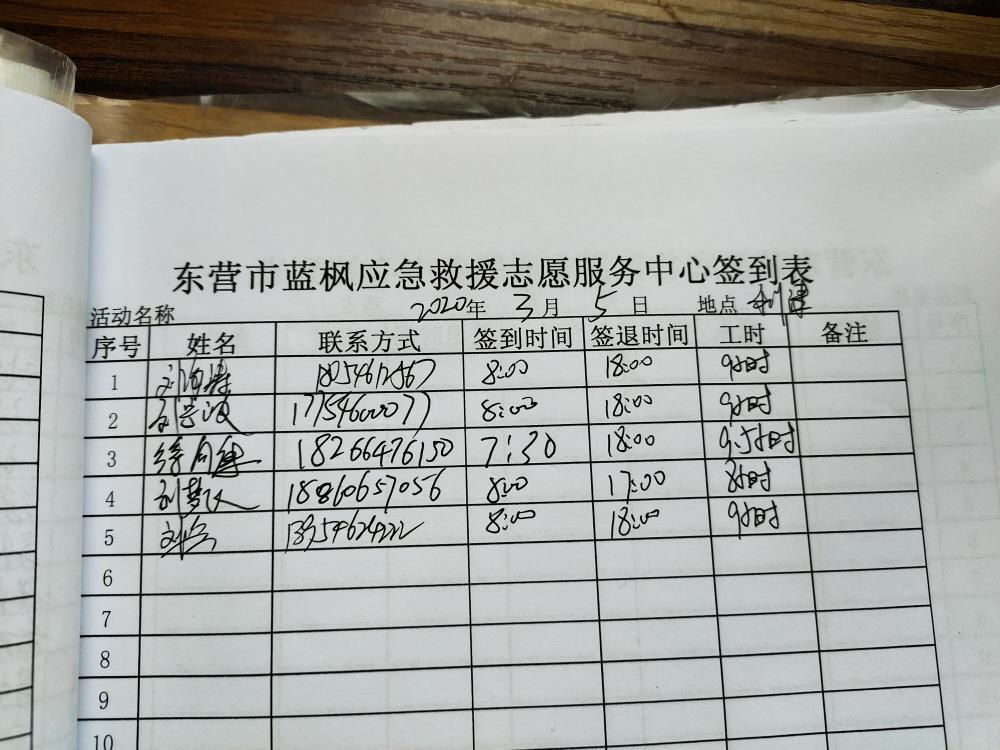 东营市蓝枫应急救援志愿服务中心签到表
活动名称 2020年 3月 5日 地点 利津
序号 姓名 联系方式 签到时间 签退时间 工时 备注
1 18054612567 8:00 18:00 9小时
2 17754600077 8:00 18:00 9小时
3 18266476150 7:30 18:00 9.5小时
4 18860657056 8:00 17:00 8小时
5 13954624222 8:00 18:00 9小时
6
7
8
9
10